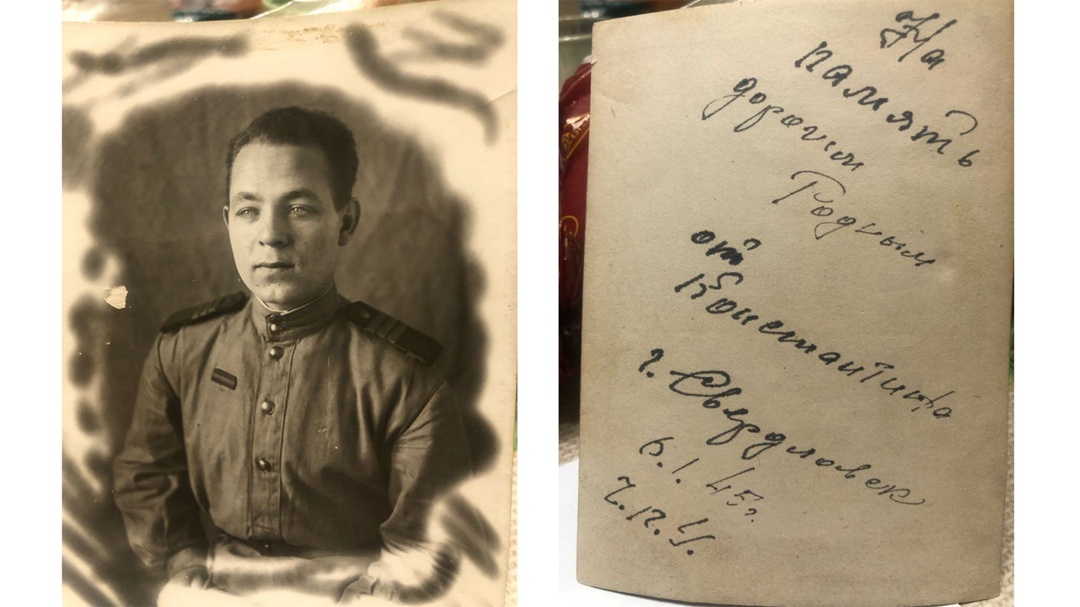 На
память
дорогим
Родным
от
Константина
г. Свердловск
6.1.45г.